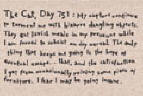 The Cat, Day 751: My captors continue
to torment me with bizarre dangling objects.
They eat lavish meals in my presence while
I am forced to subsist on dry cereal. The only
thing that keeps me going is the hope of
eventual escape... that, and the satisfaction
I get from occasionally ruining some piece of
furniture. I fear I may be going insane.